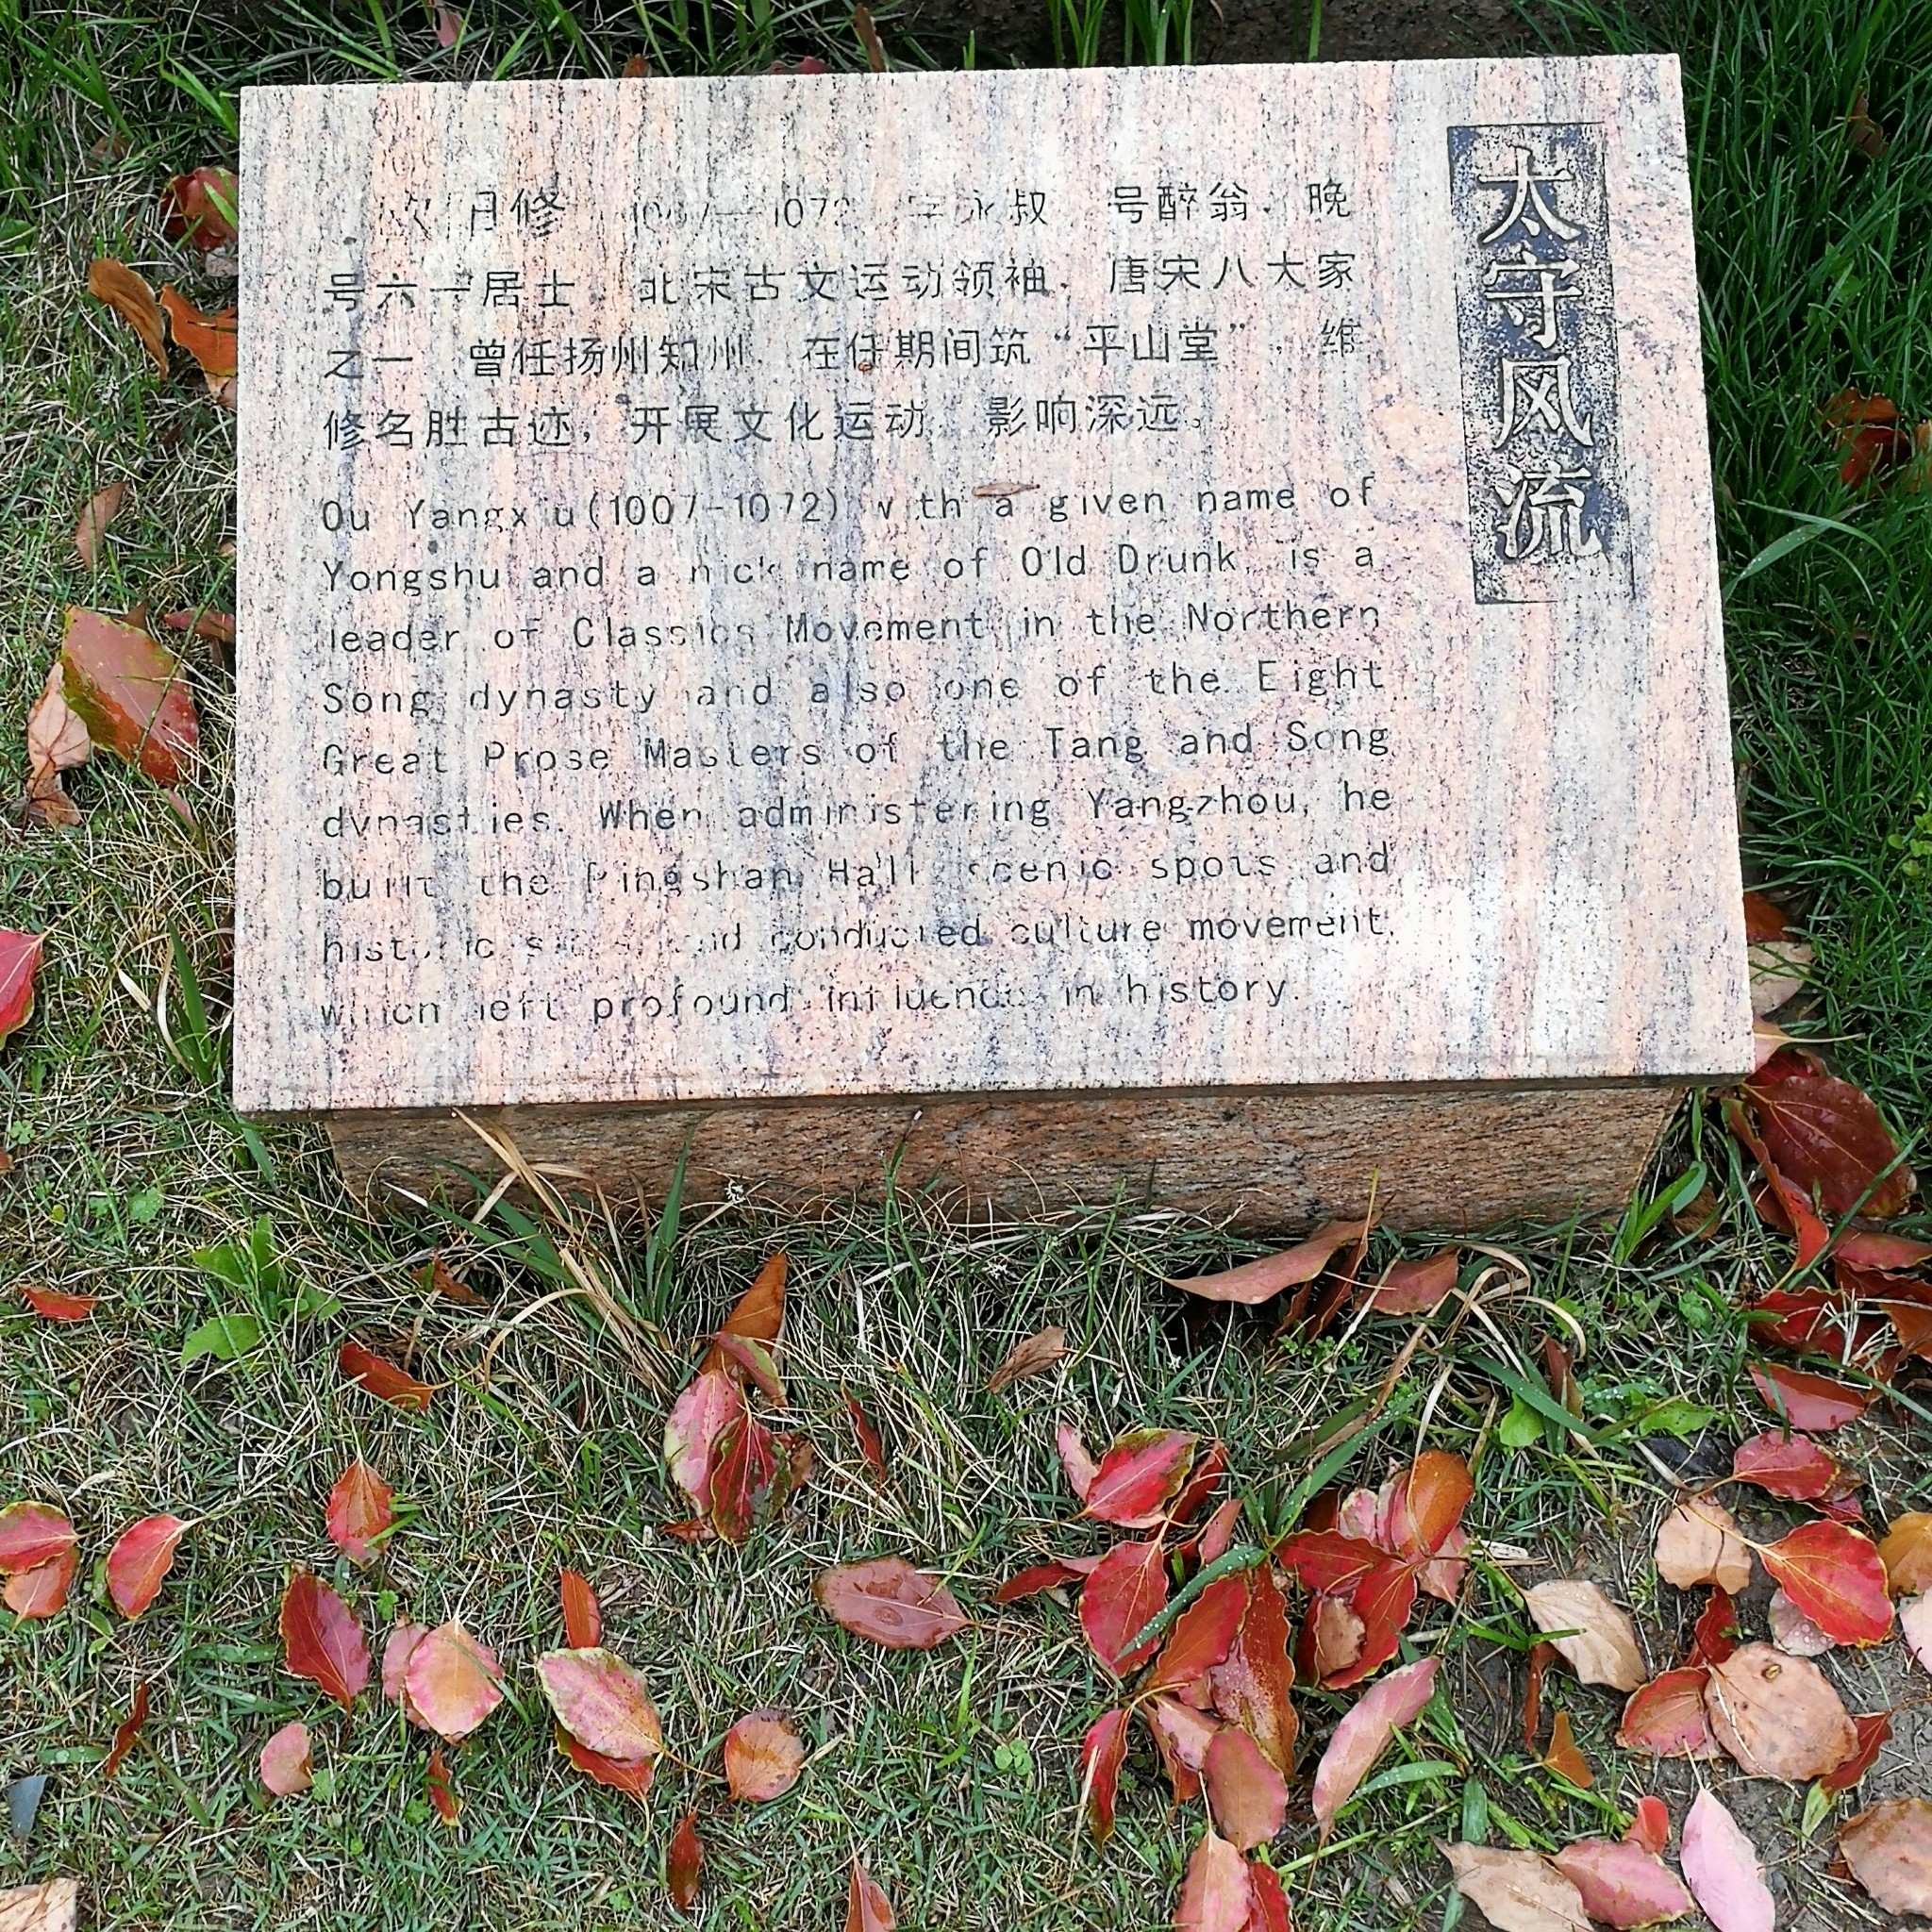 太守风流
欧阳修（1007—1072），字永叔，号醉翁，晚
号六一居士。北宋古文运动领袖，唐宋八大家
之一。曾任扬州知州，在任期间筑“平山堂”，维
修名胜古迹，开展文化运动，影响深远。
Ou Yangxiu(1007-1072) with a given name of
Yongshu and a nick name of Old Drunk, is a
leader of Classics Movement in the Northern
Song dynasty and also one of the Eight
Great Prose Masters of the Tang and Song
dynasties. When administering Yangzhou, he
built the Pingshan Hall, scenic spots and
historic sites and conducted culture movement,
which left profound influence in history.